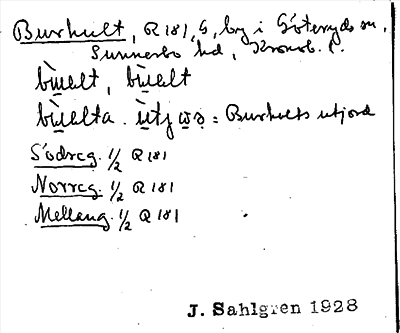 Burhult, R 181, S, by i Göteryds sn,
Sunnerbo hd, Kronob. l.
bu̲alt, bu̲alt
bu̲alta. = Burhults utjord
Södreg. 1/2 R 181
Norreg. 1/2 R 181
Mellang. 1/2 R 181
J. Sahlgren 1928